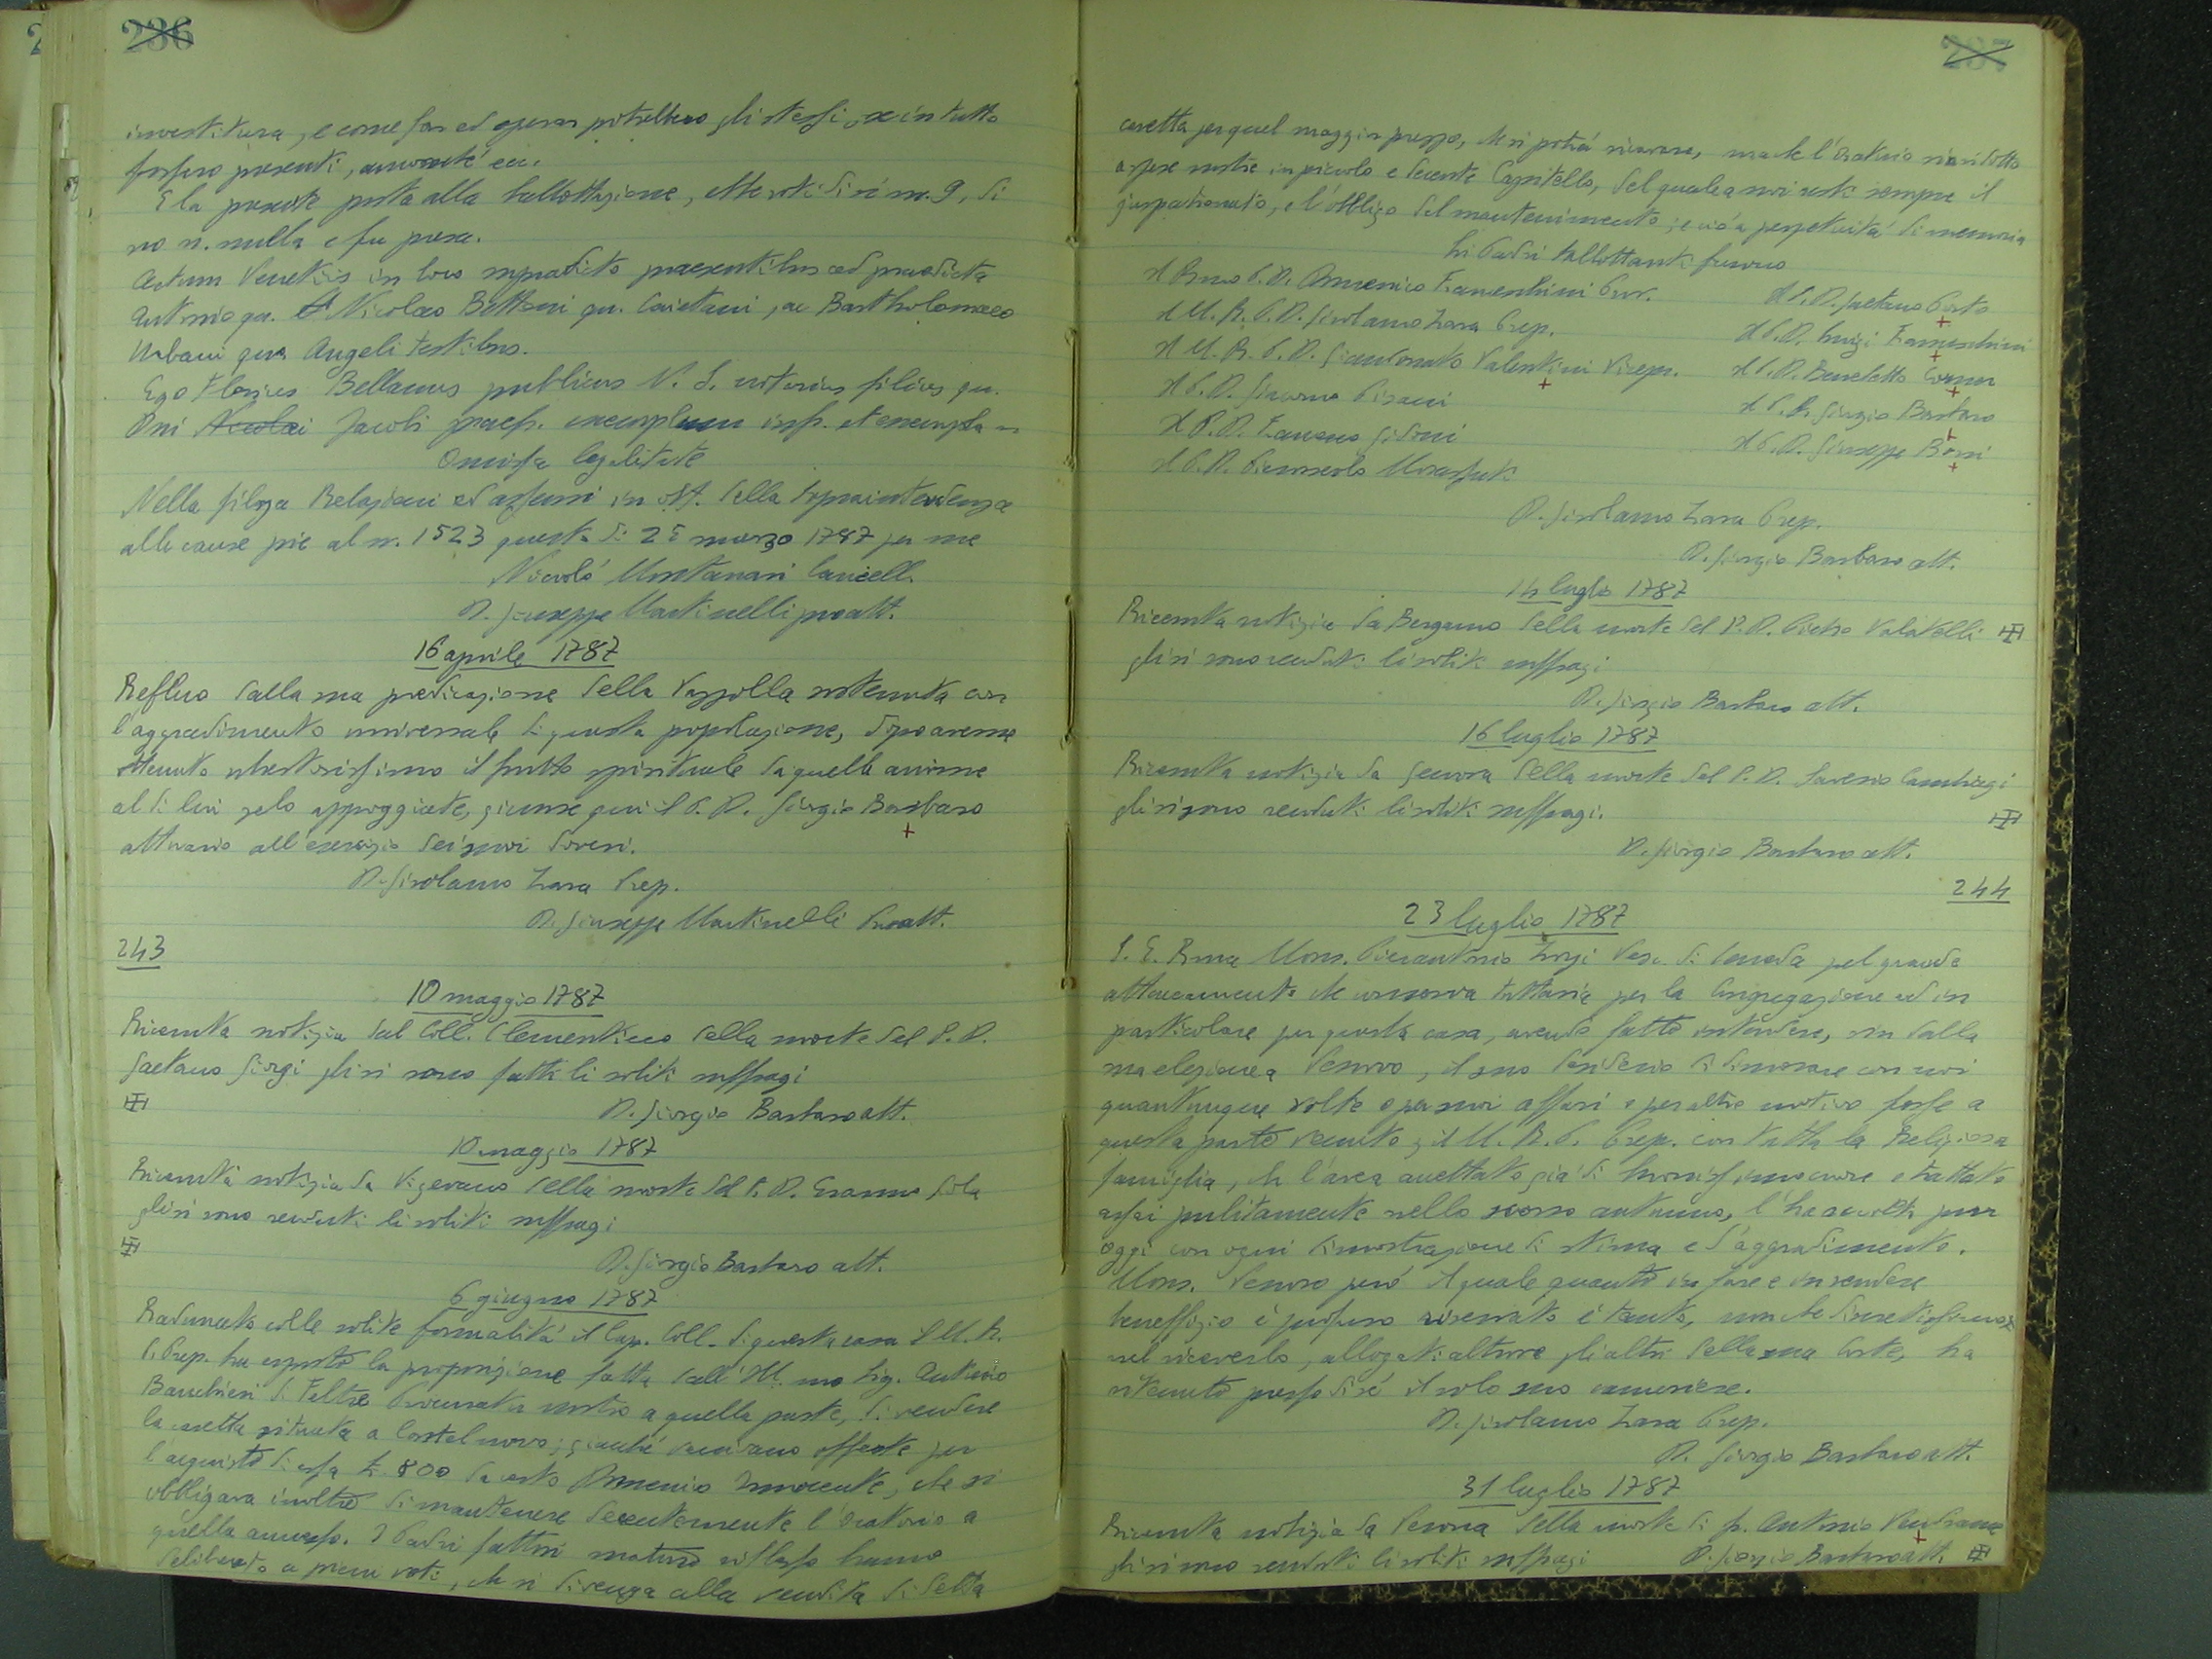 236
investitura, e come far ed operar potrebbero gli stessi, se in tutto
fossero presenti, annonché ecc.
E la presente posta alla ballottazione, ebbe voti di sì n. 9, di
no n. nulla e fu presa.
Actum Venetiis in loco supradicto praesentibus ad praedicta
Antonio qu. Nicolao Bettoni qu. Caietani, ac Bartholomaeo
Urbani qm Angeli testibus.
Ego Florius Bellanus publicus V. S. notarius filius qu.
Dni Nicolai Jacobi praef. exemplum
Omissa legalitate
Nella filza Relazioni ed assensi in off. della sopraintendenza
alle cause pie al n. 1523 questo dì 28 marzo 1787 per me
Niccolò Montanari Cancell.
D. Giuseppe Martinelli proatt.
16 aprile 1787
Refluo dalla sua predicazione della Vazzolla sostenuta con
l'aggradimento universale di questa popolazione, dopo averne
ottenuto ubertosissimo il frutto spirituale da quelle anime
al di lui zelo appoggiate, giunse qui il P. D. Giorgio Barbaro
attuario all'esercizio dei suoi doveri.
D. Girolamo Zara Prep.
D. Giuseppe Martinelli Proatt.
243
10 maggio 1787
Ricevuta notizia dal Coll. Clementino della morte del P. D.
Gaetano Giorgi gli si sono fatti li soliti suffragi
D. Giorgio Barbaro att.
10 maggio 1787
Ricevuta notizia da Vigevano della morte del P. D. Erasmo Gola
gli si sono renduti li soliti suffragi
D. Giorgio Barbaro att.
6 giugno 1787
Radunato colle solite formalità il Cap. Coll. di questa casa il M. R.
P. Prep. ha esposto la proposizione fatta dall'Ill.mo Sig. Antonio
Banchieri di Feltre Procurator nostro a quella parte, di vendere
la casetta situata a Castelnovo; giacché venivano offerte per
l'acquisto di essa L. 800 da certo Domenico Innocente, che si
obbligava inoltre di mantenere decentemente l'oratorio a
quella annesso. I Padri fattovi maturo riflesso hanno
deliberato a pieni voti, che si divenga alla vendita di detta
237
casetta per quel maggior prezzo, che si potrà ricavare, ma che l'oratorio sia ridotto
a spese nostre in piccolo e decente Capitello, del quale a noi resti sempre il
juspatronato, e l'obbligo del mantenimento; e ciò a perpetuità di memoria
Li Padri ballottanti furono
Il Rmo P. D. Domenico Franceschini Pror.
Il M. R. P. D. Girolamo Zara Prep.
Il M. R. P. D. Giandonato Valentini Vicepr.
Il P. D. Giacomo Pisani
Il P. D. Francesco Gidoni
Il P. D. Piernicola Morassuti
Il P. D. Gaetano Porto
Il P. D. Luigi Franceschini
Il P. D. Benedetto Corner
Il P. D. Giorgio Barbaro
Il P. D. Giuseppe Bossi
D. Girolamo Zara Prep.
D. Giorgio Barbaro att.
14 luglio 1787
Ricevuta notizia da Bergamo della morte del P. D. Pietro Valatelli
gli si sono renduti li soliti suffragi
D. Giorgio Barbaro att.
16 luglio 1787
Ricevuta notizia da Genova della morte del P. D. Saverio Cambiagi
gli si sono renduti li soliti suffragi.
D. Giorgio Barbaro att.
244
23 luglio 1787
S. E. Rma Mons. Pierantonio Zorzi Vesc. di Ceneda pel grande
attaccamento che conserva tuttavia per la Congregazione ed in
particolare per questa casa, avendo fatto intendere, sin dalla
sua elezione a Vescovo, il suo desiderio di dimorare con noi
quantunque volte o per suoi affari o per altro motivo fosse a
questa parte venuto; il M. R. P. Prep. con tutta la Religiosa
famiglia, che l'avea accettato già di buonissimo cuore e trattato
assai pulitamente nello scorso autunno, l'ha accolto pur
oggi con ogni dimostrazione di stima e d'aggradimento.
Mons. Vescovo però il quale quanto in fare e in rendere
beneffizio è profuso riservato è tanto, non che discretissimo
nel riceverlo, allogati altrove gli altri della sua Corte, ha
ritenuto presso di sé il solo suo cameriere.
D. Girolamo Zara Prep.
D. Giorgio Barbaro att.
31 luglio 1787
Ricevuta notizia da Verona della morte di fr. Antonio Vendrame
gli si sono renduti li soliti suffragi D. Giorgio Barbaro att.